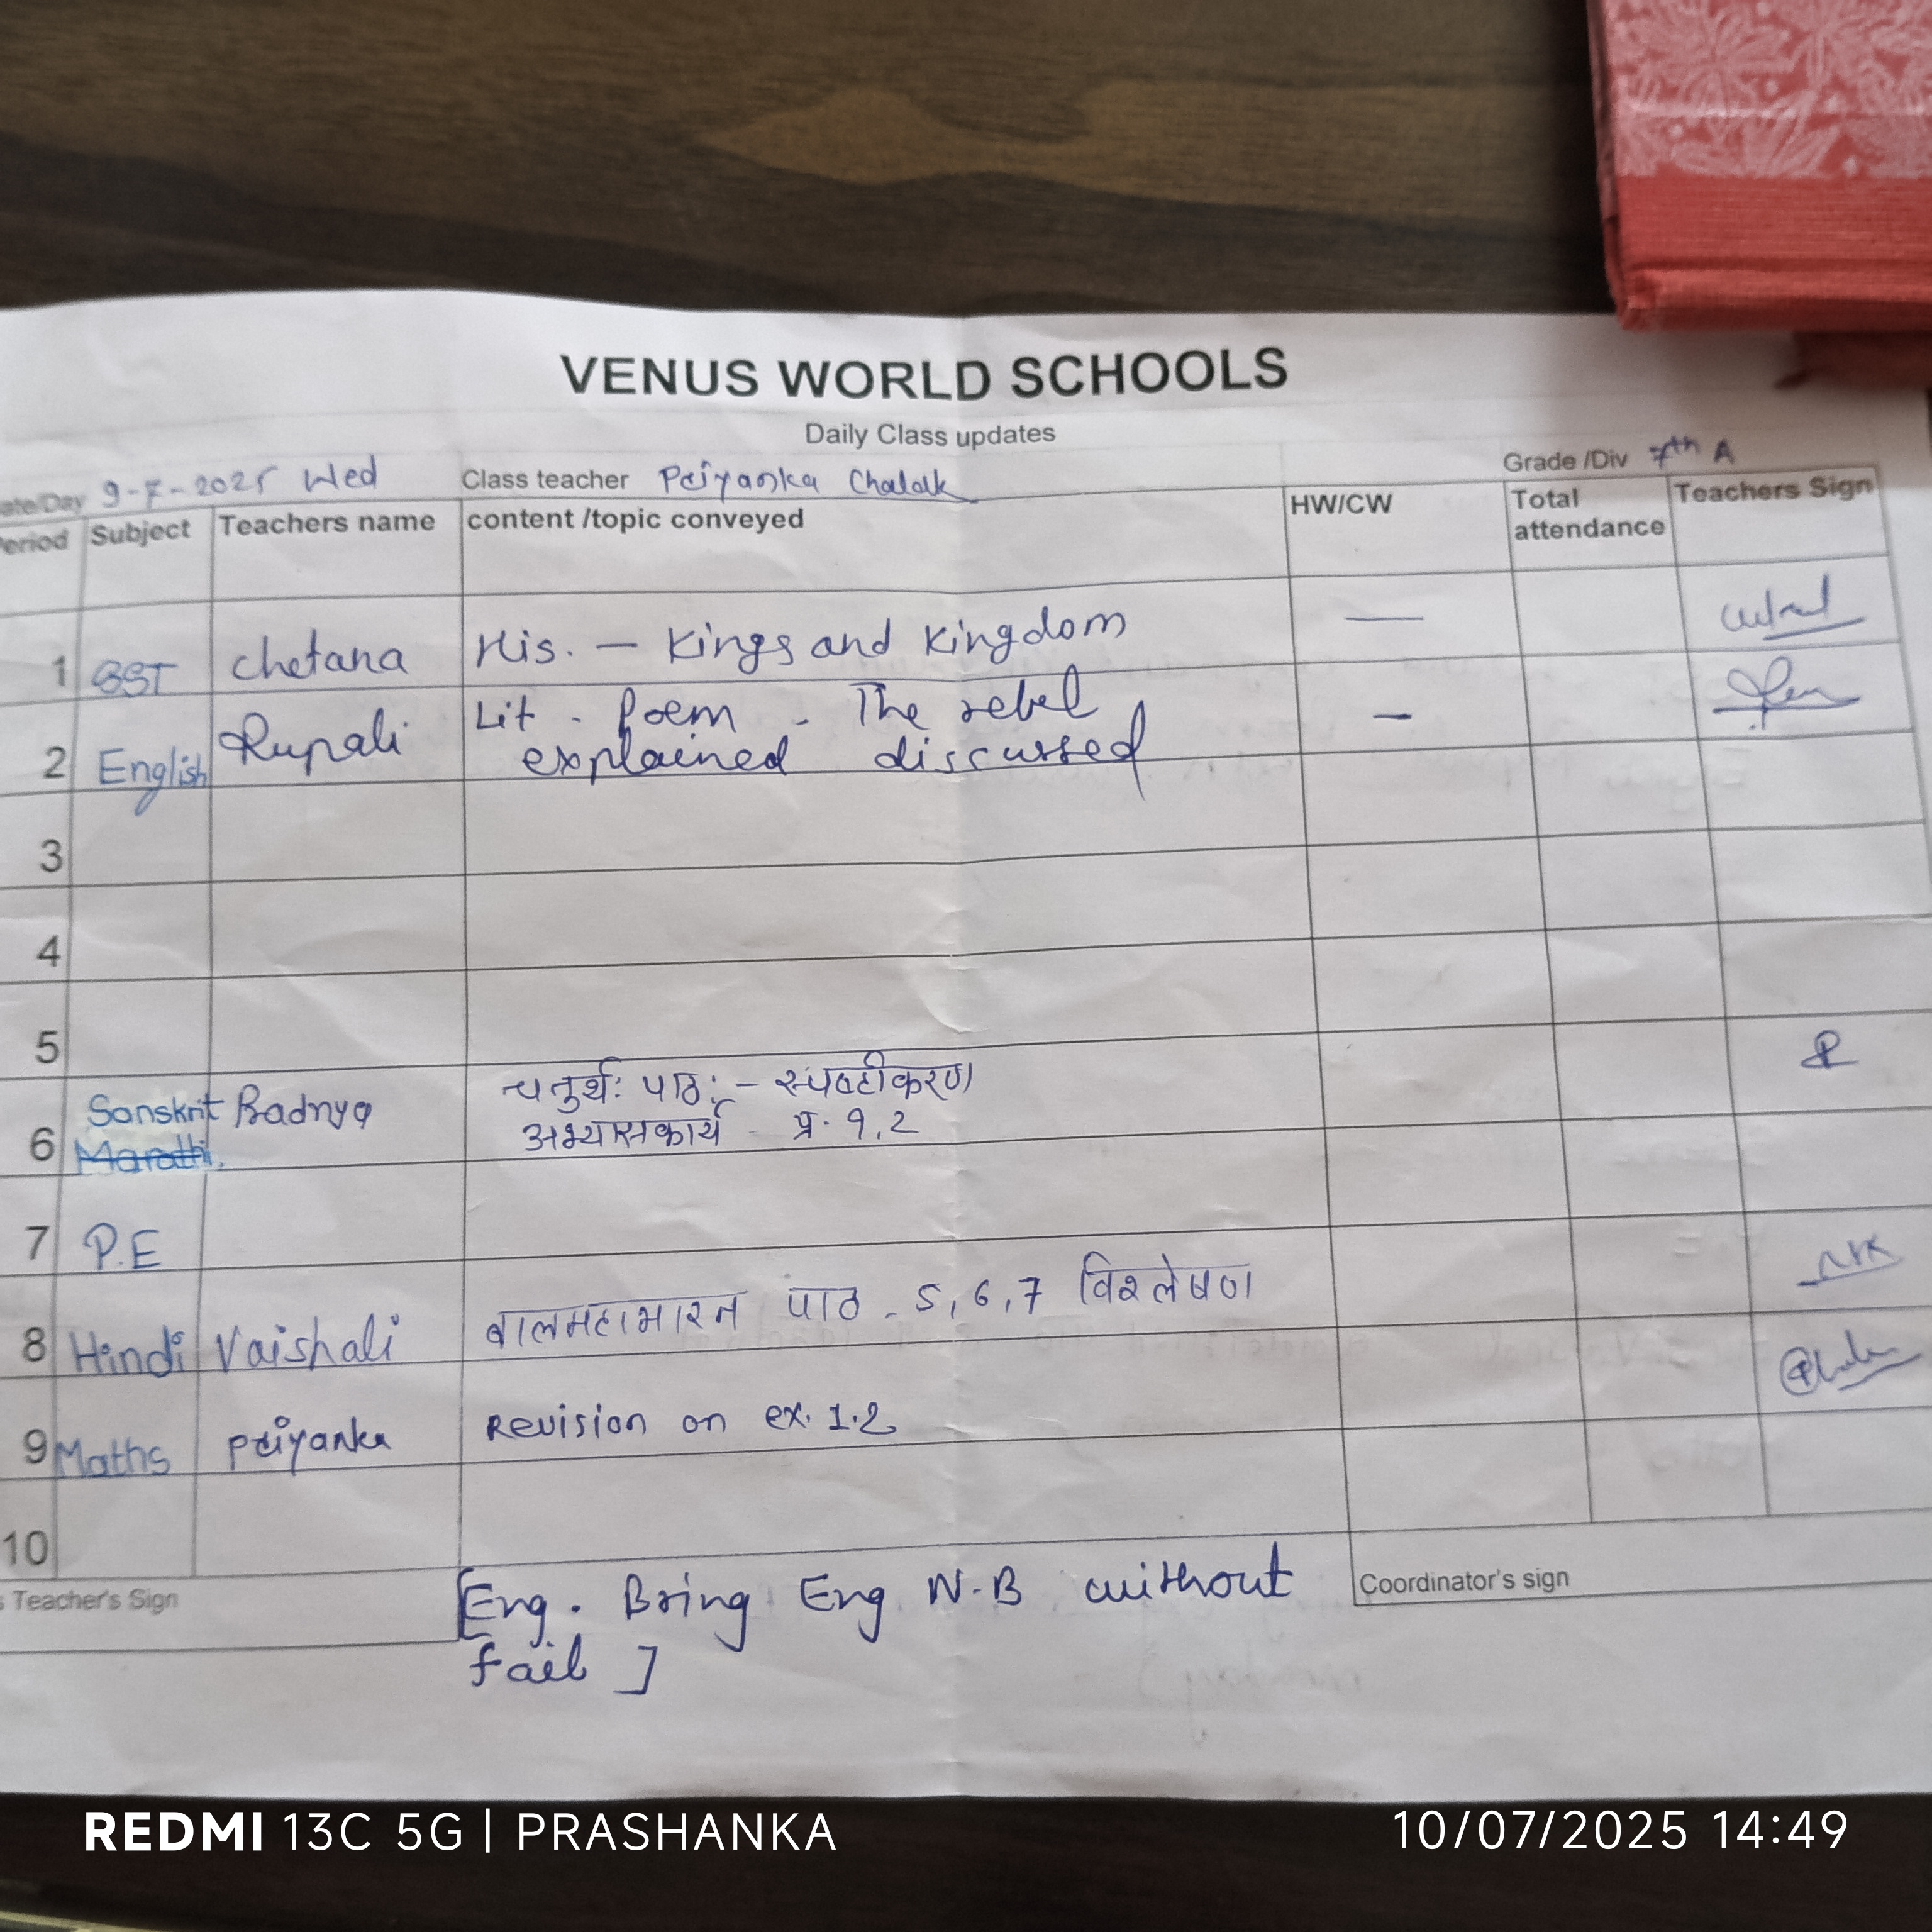 VENUS WORLD SCHOOLS
Daily Class updates
ate/Day 9-7-2025 Wed Class teacher Priyanka Chalak Grade /Div 7th A
Period Subject Teachers name content /topic conveyed HW/CW Total attendance Teachers Sign
1 SST Chetana His. — Kings and Kingdom —
2 English Rupali Lit - Poem - The rebel
explained discussed –
3
4
5
6 Sanskrit Pradnya चतुर्थः पाठः – स्पष्टीकरण
Marathi. अभ्यासकार्य - प्र. १,२
7 P.E
8 Hindi Vaishali बालमहाभारत पाठ - 5,6,7 विश्लेषण
9 Maths Priyanka Revision on ex. 1.2
10
s Teacher's Sign Coordinator's sign
[Eng. Bring Eng N.B without
fail ]
REDMI 13C 5G | PRASHANKA 10/07/2025 14:49